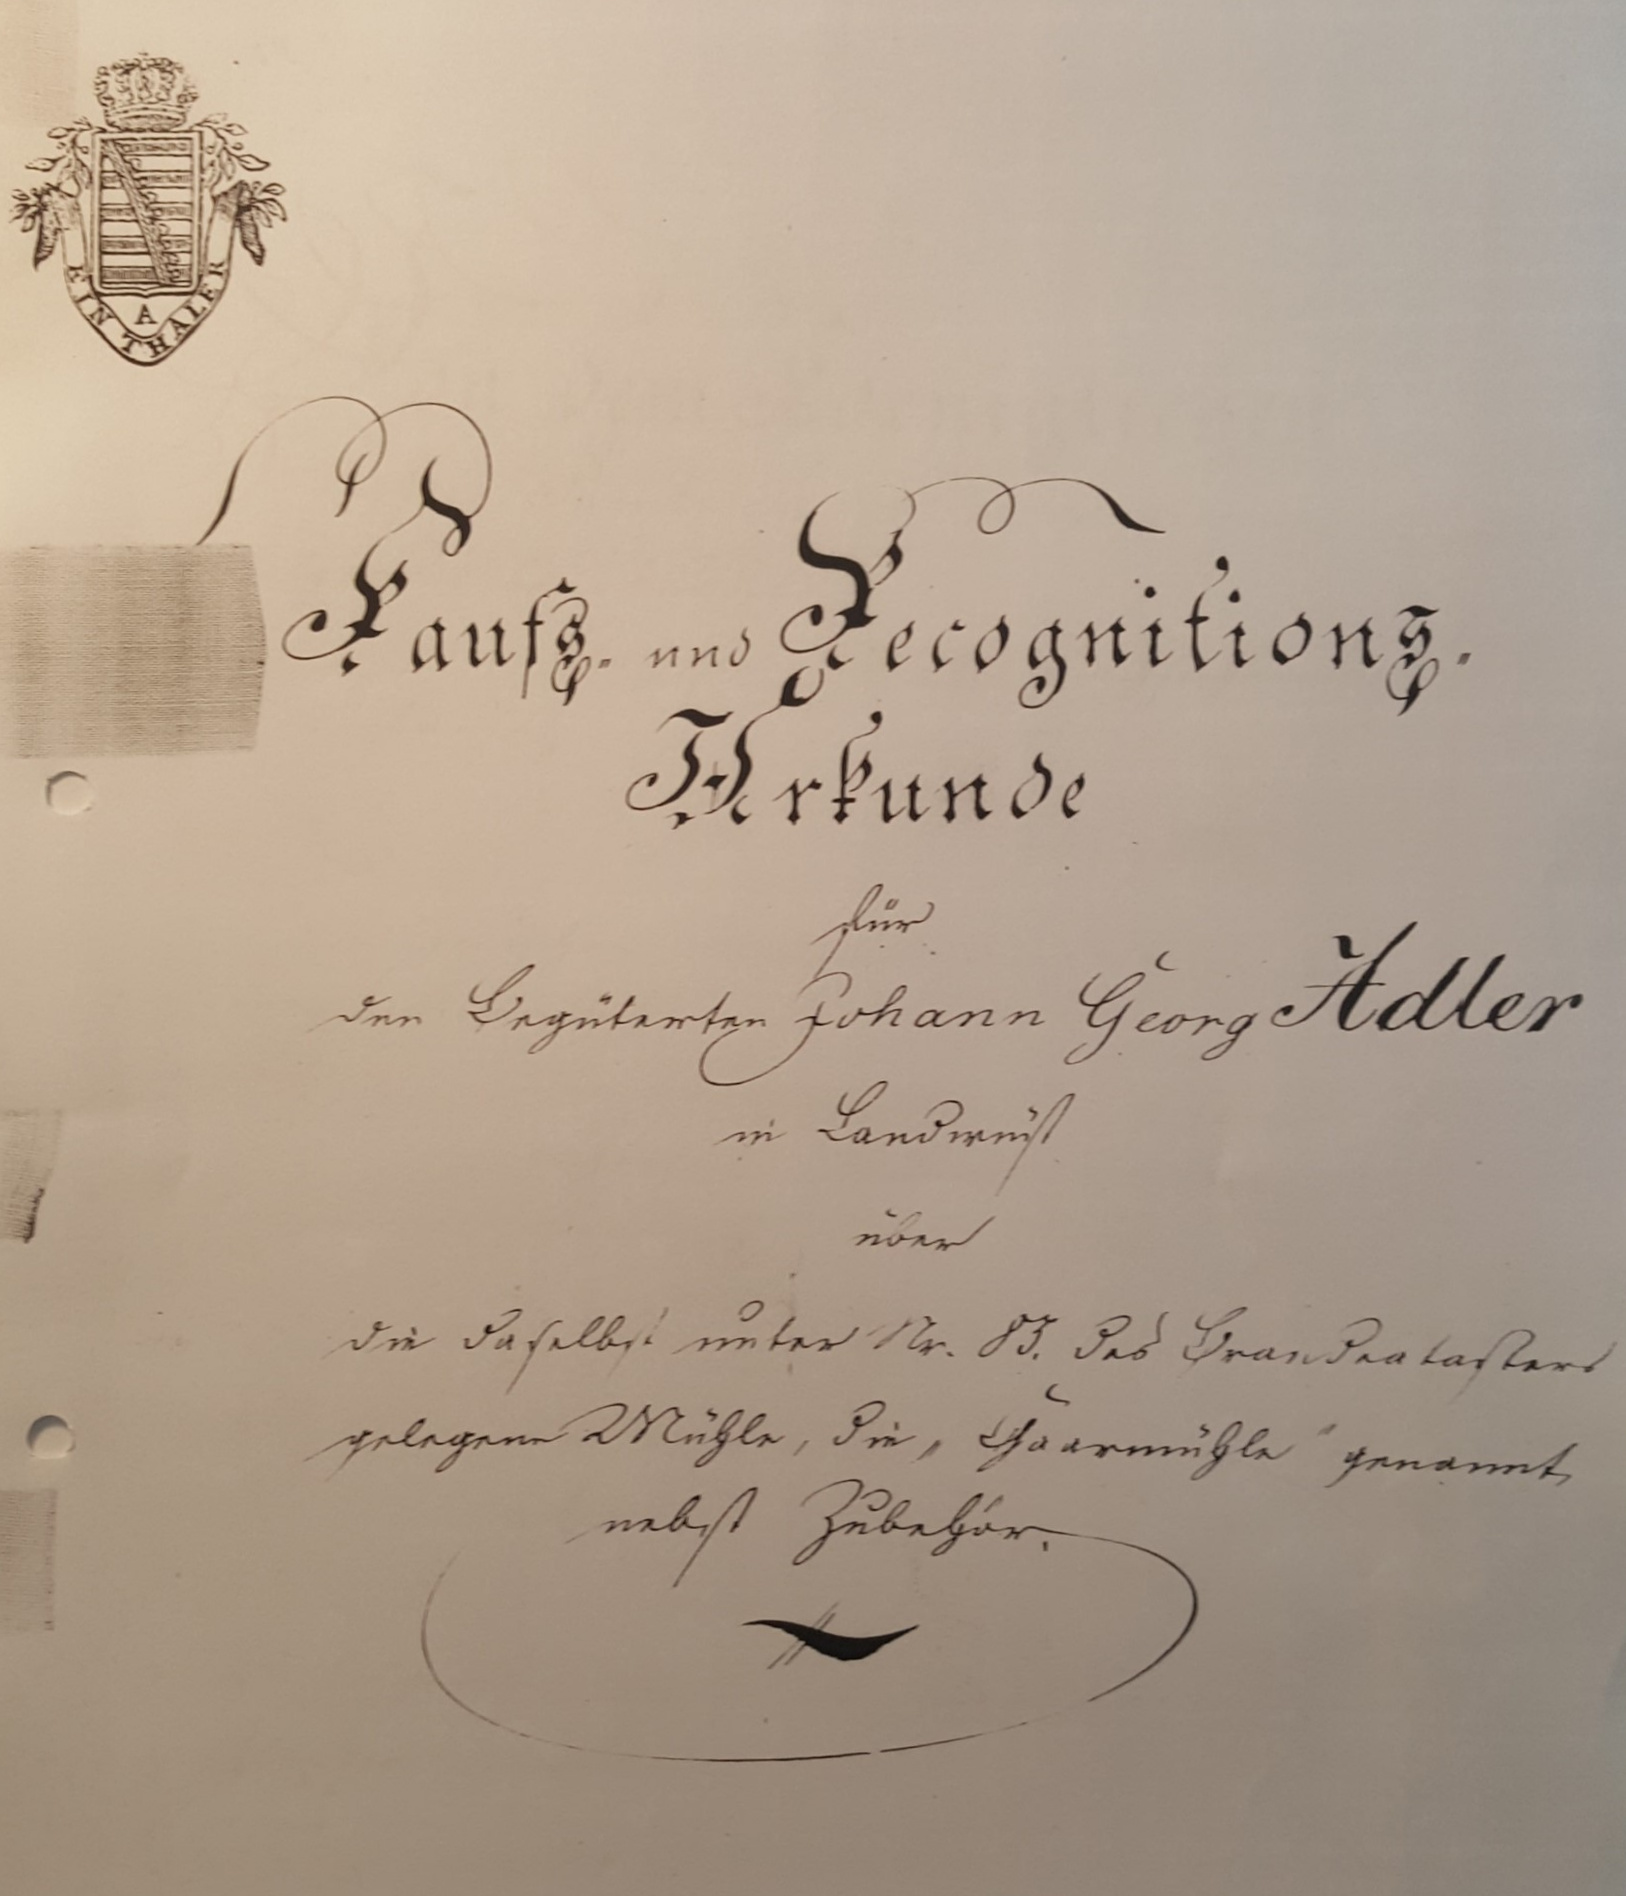 EIN THALER
A
Kaufs- und Recognitions-
Urkunde
für
den Begüterten Johann Georg Adler
in Landwüst
über
die daselbst unter Nr. 83. des Brandcatasters
gelegene Mühle, die „Haarmühle" genannt,
nebst Zubehör.